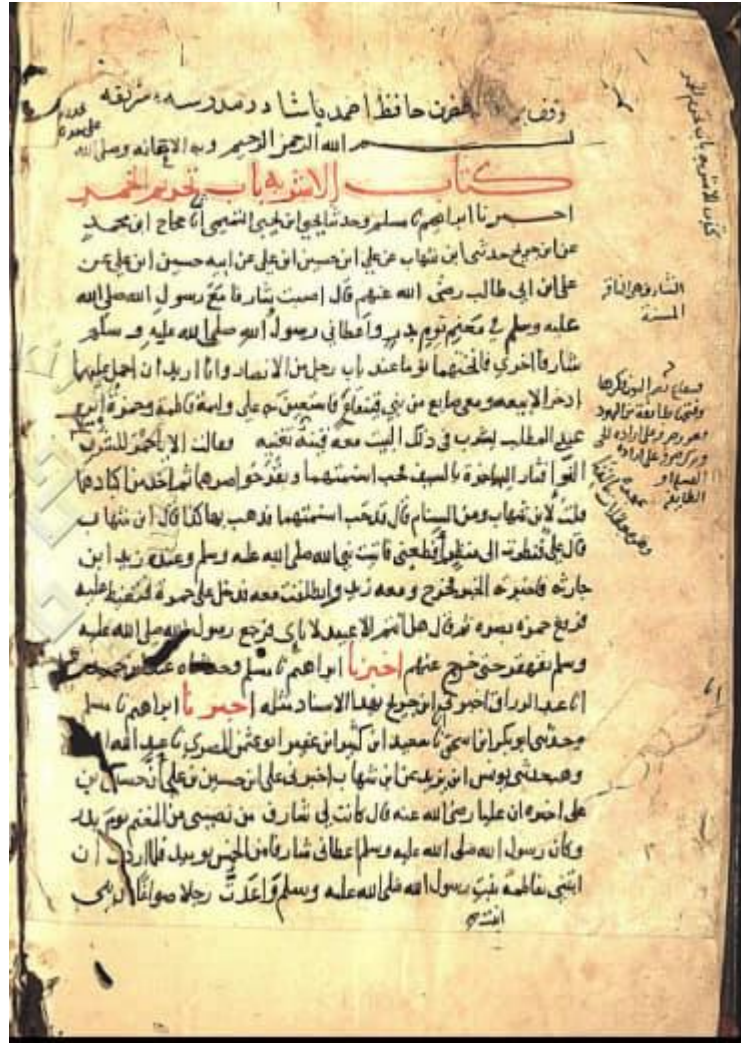 وقف حضرت حافظ احمد پاشا در مدرسه شريفه
بسم الله الرحمن الرحيم وبه الاعانه وصلى الله
كتاب الاشربه باب تحريم الخمر
اخبرنا ابراهيم نا مسلم وحدثنا يحيى ابن يحيى التميمى انا حجاج ابن محمد
عن ابن جريج حدثنى ابن شهاب عن على ابن حسين ابن على عن ابيه حسين ابن على عن
على ابن ابى طالب رضى الله عنهم قال اصبت شارفا مع رسول الله صلى الله
عليه وسلم في مغنم يوم بدر واعطانى رسول الله صلى الله عليه وسلم
شارفا اخرى فانختهما يوما عند باب رجل من الانصار وانا اريد ان احمل عليهما
اذخرا لابيعه ومعى صايغ من بنى قينقاع فاستعين به على وليمة فاطمة وحمزة ابن
عبد المطلب يشرب فى ذلك البيت معه قينة تغنيه فقالت الا يا حمز للشرف
النوا فثار اليهما حمزة بالسيف فجب اسنمتهما وبقر خواصرهما ثم اخذ من اكبادهما
قلت لابن شهاب ومن السنام قال قد جب اسنمتهما فذهب بها قال ابن شهاب
قال على فنظرت الى منظر افظعنى فاتيت نبى الله صلى الله عليه وسلم وعنده زيد ابن
حارثه فاخبرته الخبر فخرج ومعه زيد وانطلقت معه فدخل على حمزة فتغيظ عليه
فرفع حمزه بصره فقال هل انتم الا عبيد لاباى فرجع رسول الله صلى الله عليه
وسلم يقهقر حتى خرج عنهم اخبرنا ابراهيم نا مسلم وحدثناه عبد بن حميد
انا عبد الرزاق اخبرنى ابن جريج بهذا الاسناد مثله اخبرنا ابراهيم نا مسلم
وحدثنى ابو بكر ابن اسحق نا سعيد ابن كثير ابن عفير ابو عثمن المصرى نا عبد الله ابن
وهب حدثنى يونس ابن يزيد عن ابن شهاب اخبرنى على ابن حسين بن على ان حسين بن
على اخبره ان عليا رضى الله عنه قال كانت لى شارف من نصيبى من المغنم يوم بدر
وكان رسول الله صلى الله عليه وسلم اعطانى شارفا من الخمس يوميذ فلما اردت ان
ابتنى بفاطمة بنت رسول الله صلى الله عليه وسلم واعدت رجلا صواغا من بنى
كتاب الاشربه باب تحريم الخمر
الشارف هى الناقة
المسنة